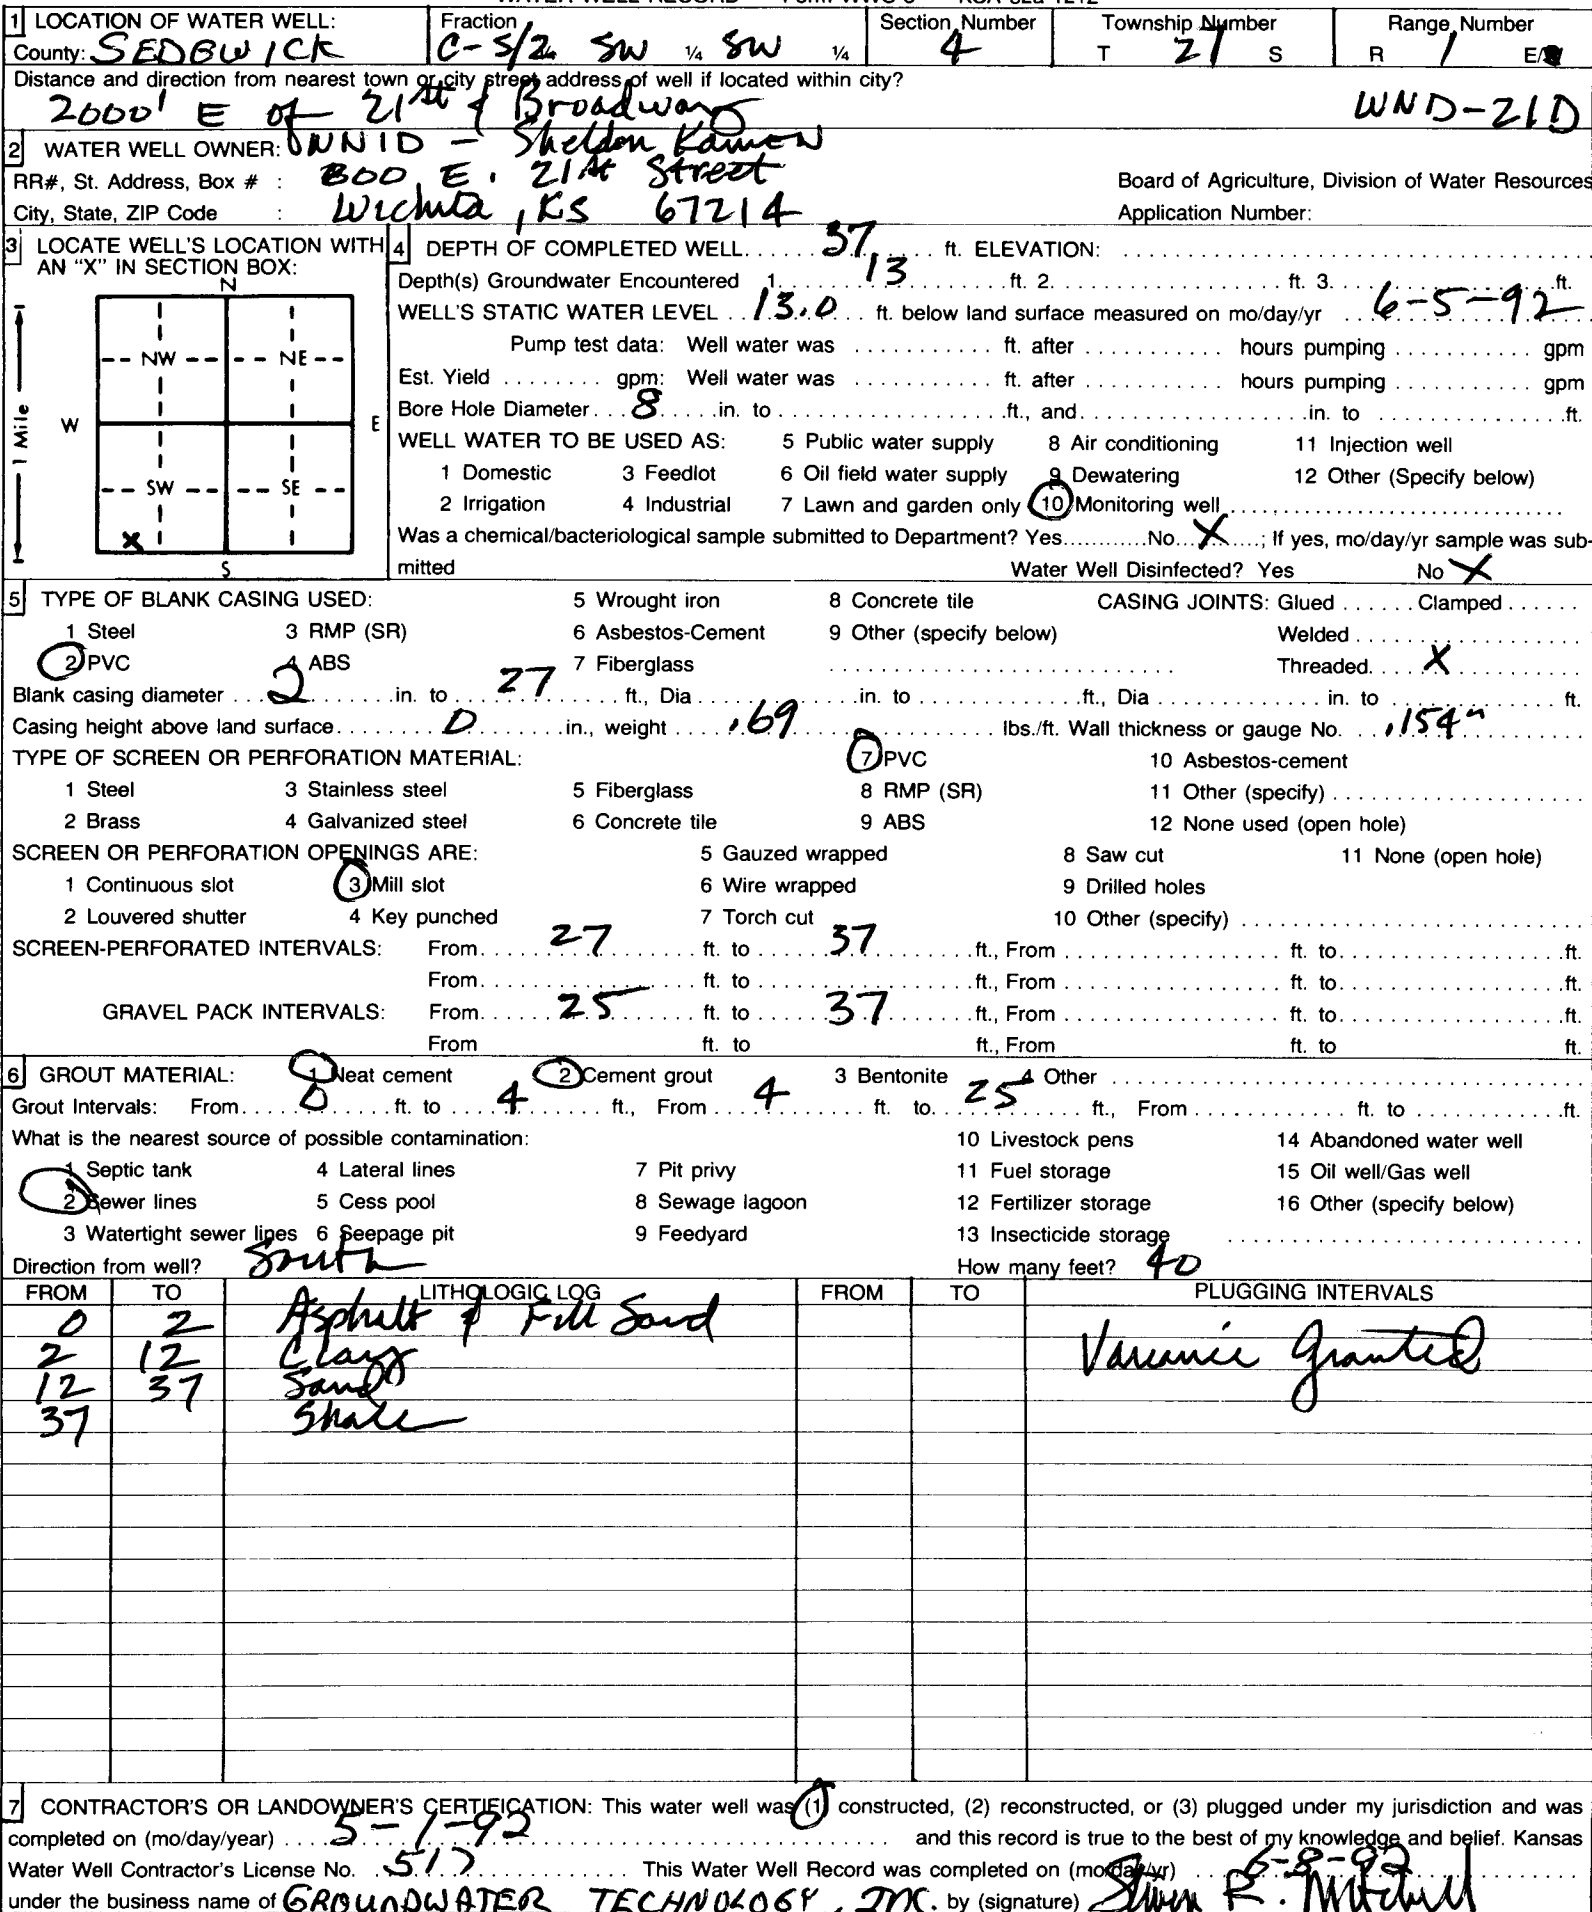 WATER WELL RECORD Form WWC-5 KSA 82a-1212
1 LOCATION OF WATER WELL: Fraction Section Number Township Number Range Number
County: SEDGWICK C-S/2 SW ¼ SW ¼ 4 T 27 S R 1 E/
Distance and direction from nearest town or city street address of well if located within city?
2000' E of 21st & Broadway WND-21D
2 WATER WELL OWNER: WNNID - Sheldon Kamen
RR#, St. Address, Box # : 800 E. 21st Street Board of Agriculture, Division of Water Resources
City, State, ZIP Code : Wichita, KS 67214 Application Number:
3 LOCATE WELL'S LOCATION WITH AN "X" IN SECTION BOX:
N
NW NE
W E
SW SE
X
S
1 Mile
4 DEPTH OF COMPLETED WELL 37 ft. ELEVATION:
Depth(s) Groundwater Encountered 1. 13 ft. 2. ft. 3. ft.
WELL'S STATIC WATER LEVEL 13.0 ft. below land surface measured on mo/day/yr 6-5-92
Pump test data: Well water was ft. after hours pumping gpm
Est. Yield gpm: Well water was ft. after hours pumping gpm
Bore Hole Diameter 8 in. to ft., and in. to ft.
WELL WATER TO BE USED AS: 5 Public water supply 8 Air conditioning 11 Injection well
1 Domestic 3 Feedlot 6 Oil field water supply 9 Dewatering 12 Other (Specify below)
2 Irrigation 4 Industrial 7 Lawn and garden only 10 Monitoring well
Was a chemical/bacteriological sample submitted to Department? Yes No X; If yes, mo/day/yr sample was sub-
mitted Water Well Disinfected? Yes No X
5 TYPE OF BLANK CASING USED: 5 Wrought iron 8 Concrete tile CASING JOINTS: Glued Clamped
1 Steel 3 RMP (SR) 6 Asbestos-Cement 9 Other (specify below) Welded
2 PVC 4 ABS 7 Fiberglass Threaded X
Blank casing diameter 2 in. to 27 ft., Dia in. to ft., Dia in. to ft.
Casing height above land surface 0 in., weight .69 lbs./ft. Wall thickness or gauge No. .154"
TYPE OF SCREEN OR PERFORATION MATERIAL: 7 PVC 10 Asbestos-cement
1 Steel 3 Stainless steel 5 Fiberglass 8 RMP (SR) 11 Other (specify)
2 Brass 4 Galvanized steel 6 Concrete tile 9 ABS 12 None used (open hole)
SCREEN OR PERFORATION OPENINGS ARE: 5 Gauzed wrapped 8 Saw cut 11 None (open hole)
1 Continuous slot 3 Mill slot 6 Wire wrapped 9 Drilled holes
2 Louvered shutter 4 Key punched 7 Torch cut 10 Other (specify)
SCREEN-PERFORATED INTERVALS: From 27 ft. to 37 ft., From ft. to ft.
From ft. to ft., From ft. to ft.
GRAVEL PACK INTERVALS: From 25 ft. to 37 ft., From ft. to ft.
From ft. to ft., From ft. to ft.
6 GROUT MATERIAL: 1 Neat cement 2 Cement grout 3 Bentonite 4 Other
Grout Intervals: From 0 ft. to 4 ft., From 4 ft. to 25 ft., From ft. to ft.
What is the nearest source of possible contamination: 10 Livestock pens 14 Abandoned water well
1 Septic tank 4 Lateral lines 7 Pit privy 11 Fuel storage 15 Oil well/Gas well
2 Sewer lines 5 Cess pool 8 Sewage lagoon 12 Fertilizer storage 16 Other (specify below)
3 Watertight sewer lines 6 Seepage pit 9 Feedyard 13 Insecticide storage
Direction from well? South How many feet? 40
FROM TO LITHOLOGIC LOG FROM TO PLUGGING INTERVALS
0 2 Asphalt & Fill Sand
2 12 Clay Variance Granted
12 37 Sand
37 Shale
7 CONTRACTOR'S OR LANDOWNER'S CERTIFICATION: This water well was (1) constructed, (2) reconstructed, or (3) plugged under my jurisdiction and was
completed on (mo/day/year) 5-1-92 and this record is true to the best of my knowledge and belief. Kansas
Water Well Contractor's License No. 517 This Water Well Record was completed on (mo/day/yr) 6-8-92
under the business name of GROUNDWATER TECHNOLOGY, INC. by (signature) Steven R. Mitchell